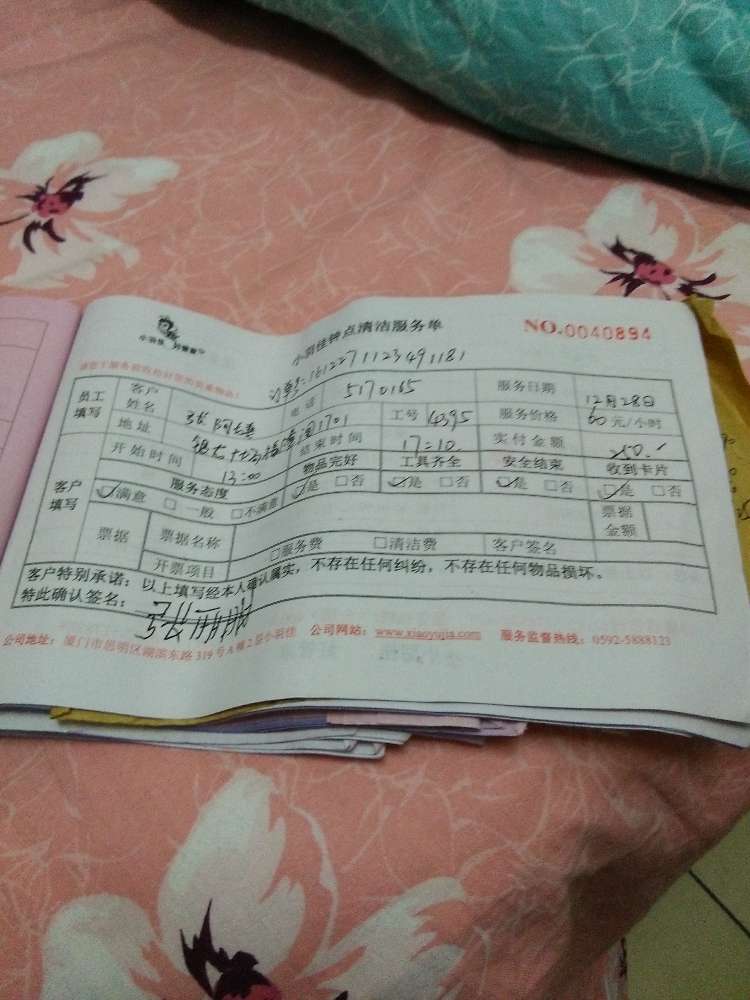 小羽佳 好管家
小羽佳钟点清洁服务单
NO.0040894
订单号:16122711123491181
员工填写 客户姓名 张阿 电话 5170165 服务日期 12月28日
地址 1701 工号 14395 服务价格 60元/小时
客户填写 开始时间 13:00 结束时间 17:10 实付金额 250.
服务态度 物品完好 工具齐全 安全结束 收到卡片
☑满意 □一般 □不满意 ☑是 □否 ☑是 □否 ☑是 □否 ☑是 □否
票据 票据名称 票据金额
开票项目 □服务费 □清洁费 客户签名
客户特别承诺:以上填写经本人确认属实,不存在任何纠纷,不存在任何物品损坏。
特此确认签名:
公司地址:厦门市思明区湖滨东路319号A栋2层小羽佳 公司网站:www.xiaoyujia.com 服务监督热线:0592-5888123